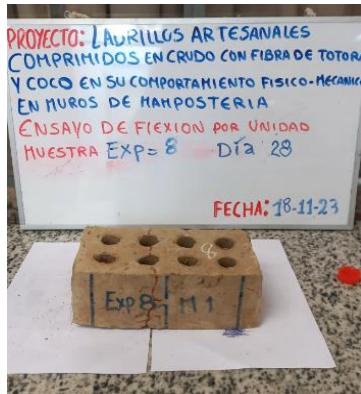 PROYECTO: LADRILLOS ARTESANALES
COMPRIMIDOS EN CRUDO CON FIBRA DE TOTORA
Y COCO EN SU COMPORTAMIENTO FISICO-MECANICO
EN MUROS DE MAMPOSTERIA
ENSAYO DE FLEXION POR UNIDAD
MUESTRA EXP= 8 Día 28
FECHA: 18-11-23
8
Exp 8 M 1